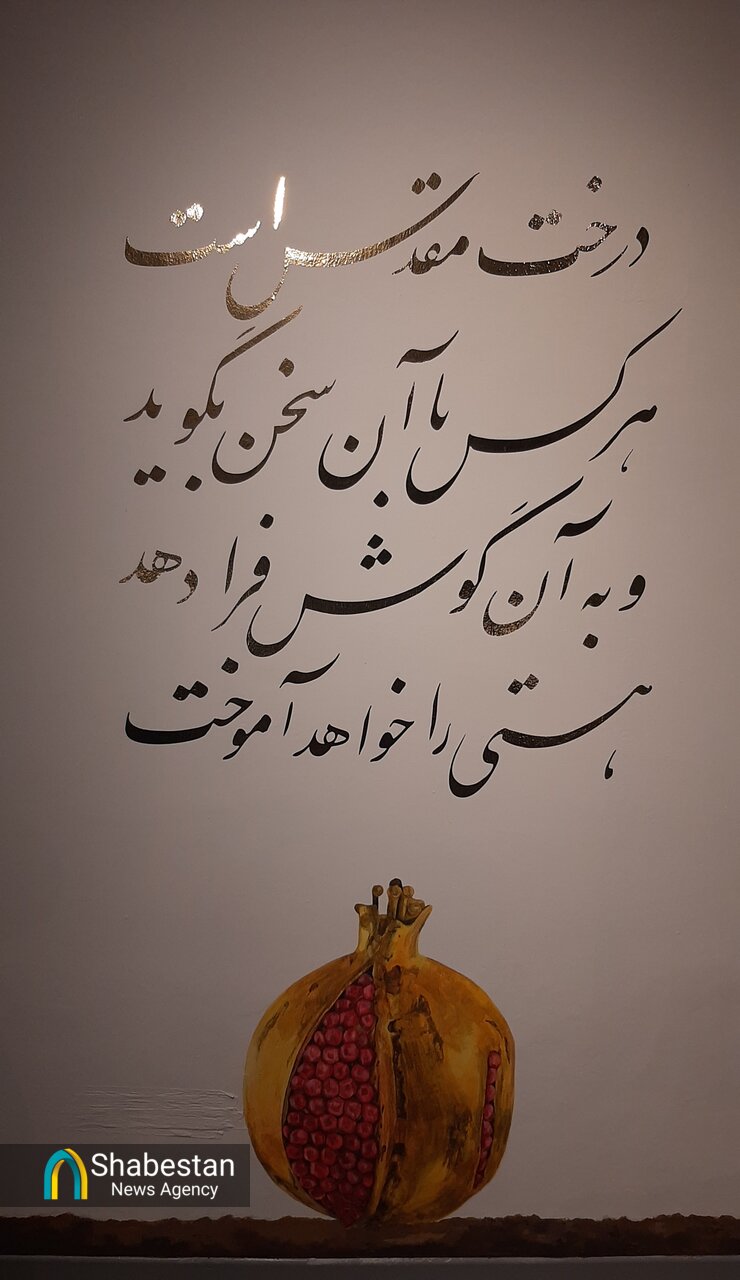 درخت مقدس است
هر کس با آن سخن بگوید
و به آن گوش فرا دهد
هستی را خواهد آموخت
Shabestan
News Agency